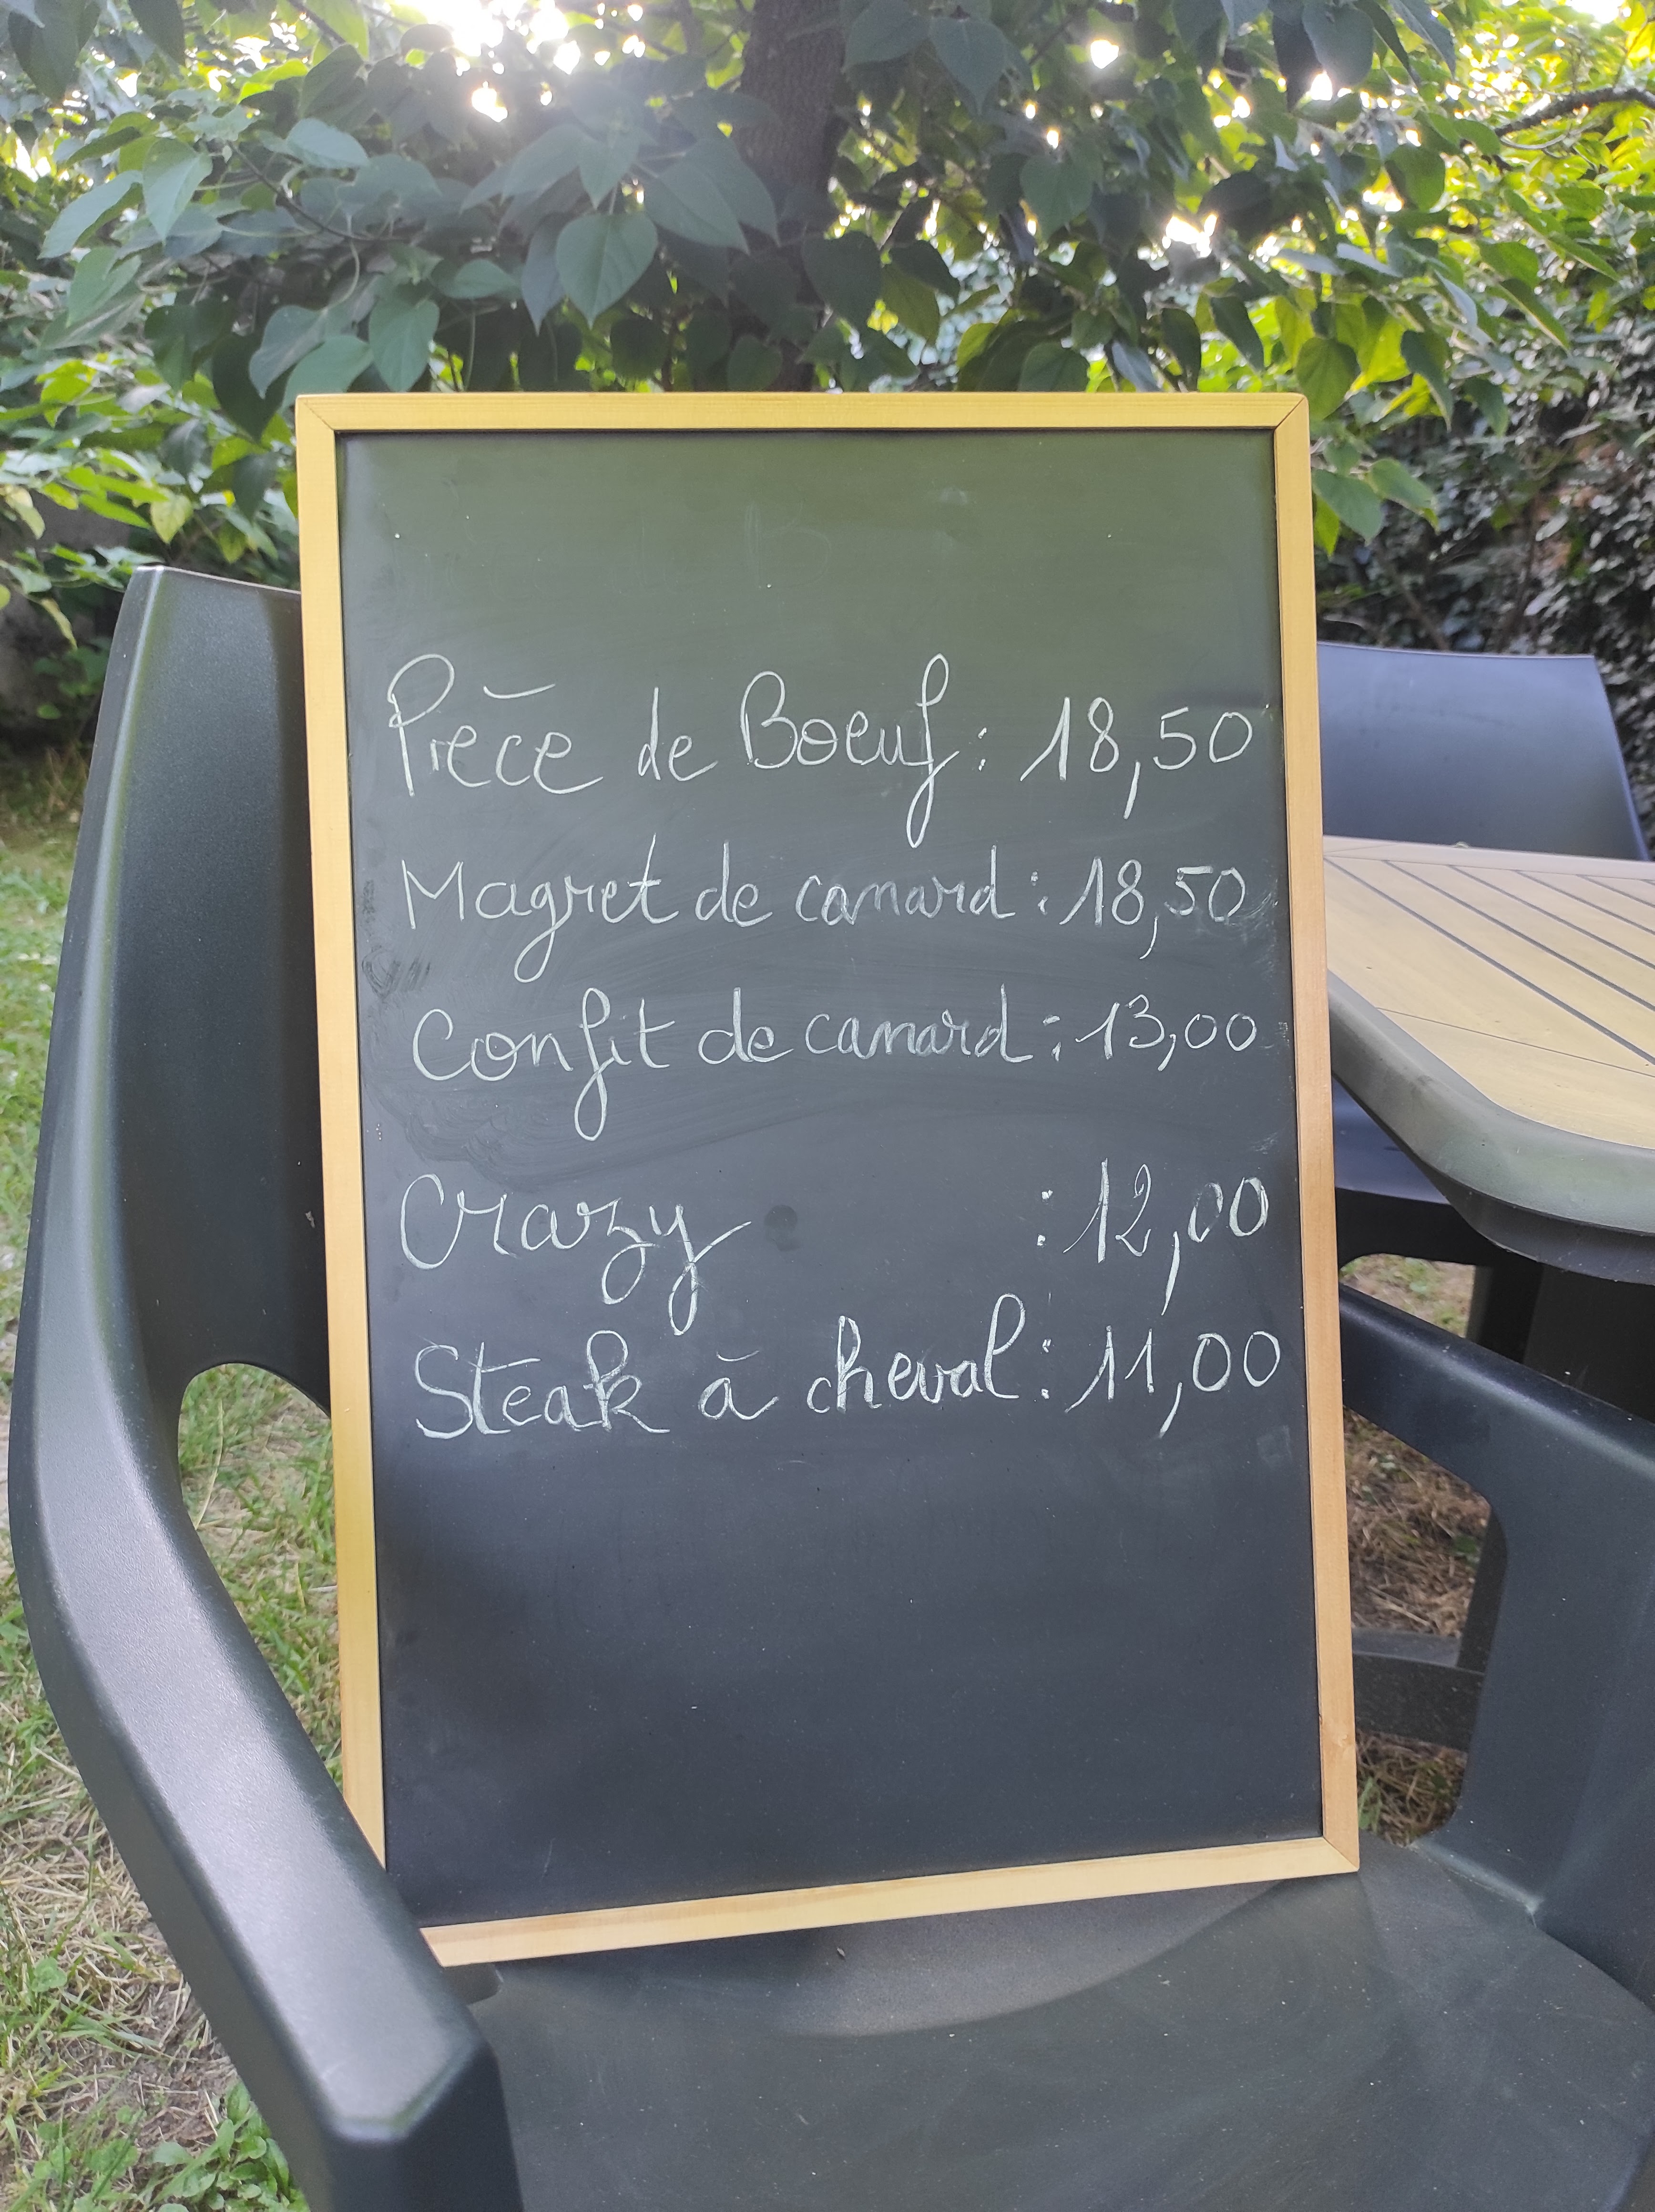 Pièce de Boeuf : 18,50
Magret de canard : 18,50
Confit de canard : 13,00
Crazy : 12,00
Steak à cheval : 11,00